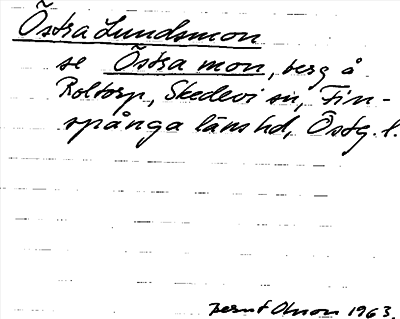 Östra Lundsmon
se Östra mon, berg å
Roltorp, Skedevi sn, Fin-
spånga läns hd, Östg. l.
Bernt Olson 1963.